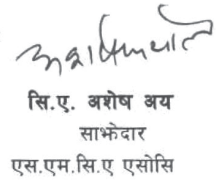 सि.ए. अशेष अय
साझेदार
एस.एम.सि.ए एसोसि